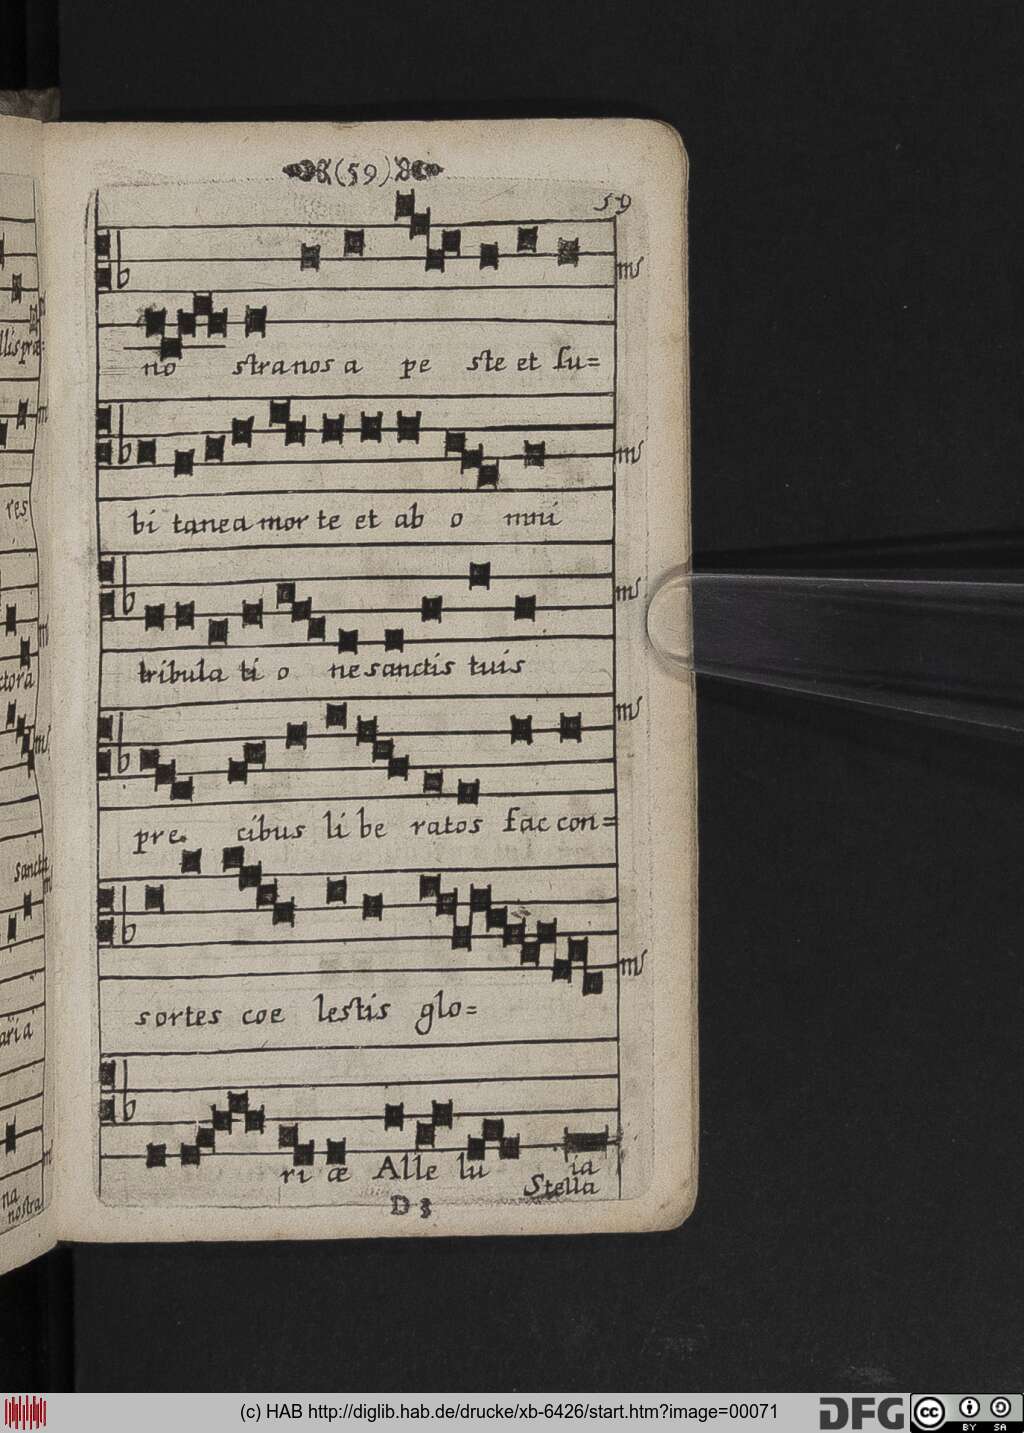 (59)
59
no stra nos a pe ste et lu=
bi tanea mor te et ab o mni
tribula ti o ne sanctis tuis
pre. cibus li be ratos fac con=
sortes coe lestis glo=
ri æ Alle lu ia
Stella
D 3
llis præ=
res
ctora
sancta
aria
na
nostra
(c) HAB http://diglib.hab.de/drucke/xb-6426/start.htm?image=00071
DFG
cc
BY SA